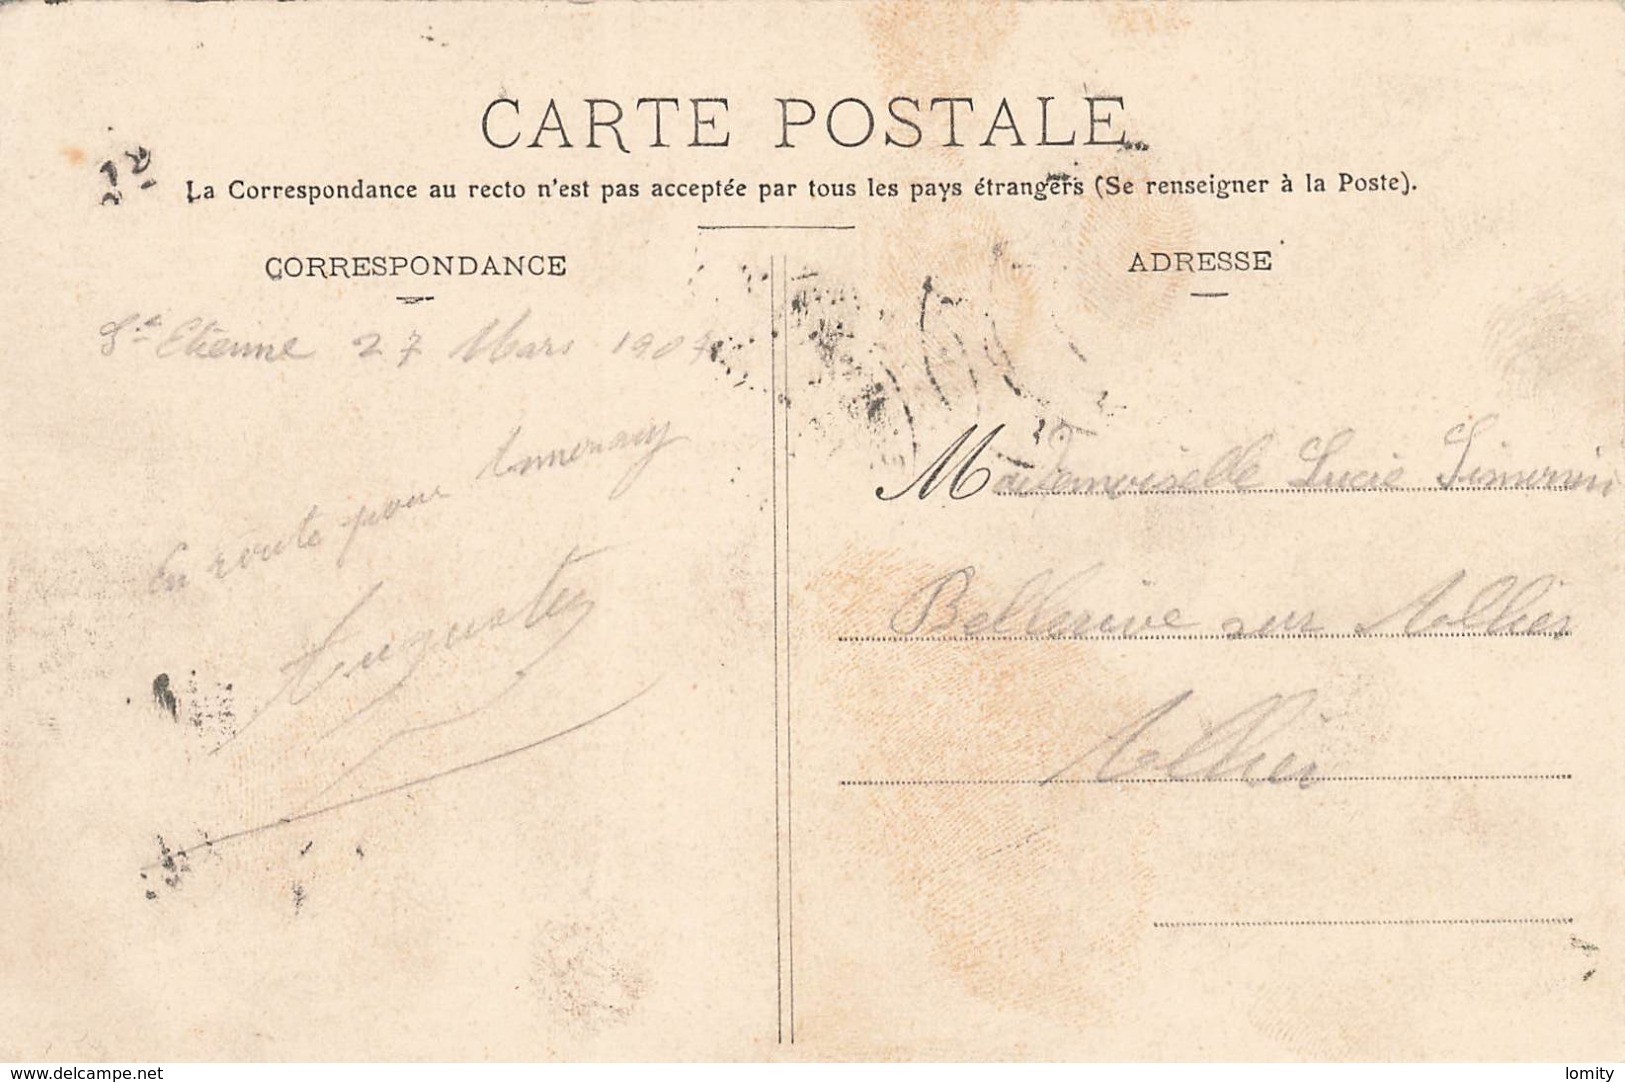 CARTE POSTALE
La Correspondance au recto n'est pas acceptée par tous les pays étrangers (Se renseigner à la Poste).
CORRESPONDANCE
St Etienne 27 Mars 1907
En route pour Annonay
ADRESSE
Mademoiselle Lucie Simonnin
Bellerive sur Allier
Allier
www.delcampe.net
lomity